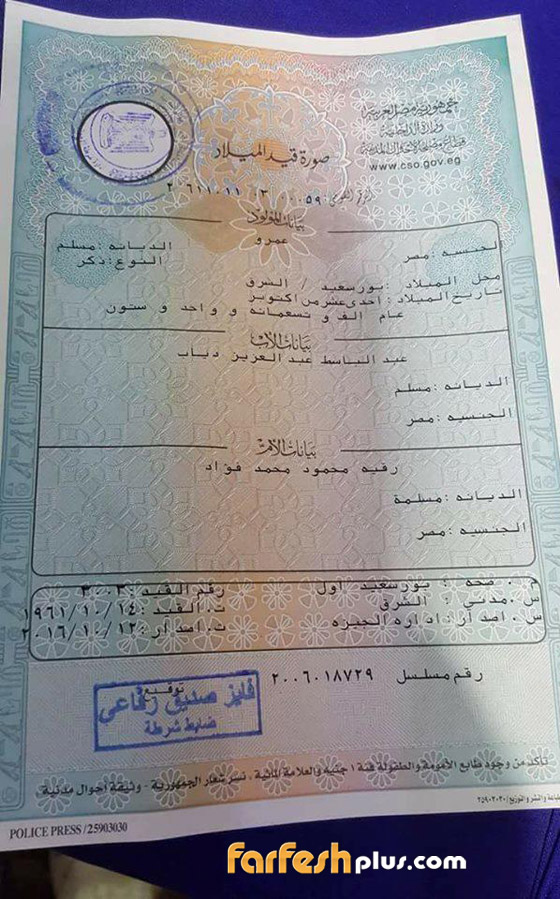 جمهورية مصر العربية
وزارة الداخلية
قطاع مصلحة الأحوال المدنية
www.cso.gov.eg
صورة قيد الميلاد
بيانات المولود
عمرو
الجنسيه :مصر
الديانه :مسلم
النوع :ذكر
محل الميلاد :بورسعيد / الشرق
تاريخ الميلاد : احدى عشر من اكتوبر
عام الف و تسعمائه و واحد و ستون
بيانات الأب
عبد الباسط عبد العزيز دياب
الديانه :مسلم
الجنسيه :مصر
بيانات الأم
رقيه محمود محمد فؤاد
الديانه :مسلمة
الجنسيه :مصر
م. صحه : بورسعيد اول
رقم القيد :٣٠٠٣
س .مدني : الشرق
ت. القيد :١٩٦١/١٠/١٤
س. اصدار : اداره الجيزه
ت. اصدار :٢٠١٦/١٠/١٢
رقم مسلسل ٢٠٠٦٠١٨٧٢٩
توقيع
فايز صديق رفاعى
ضابط شرطة
تأكد من وجود طابع الأمومة والطفولة فئة ١ جنيه والعلامة المائية ، نسر شعار الجمهورية - وثيقة أحوال مدنية
POLICE PRESS / 25903030
farfeshplus.com